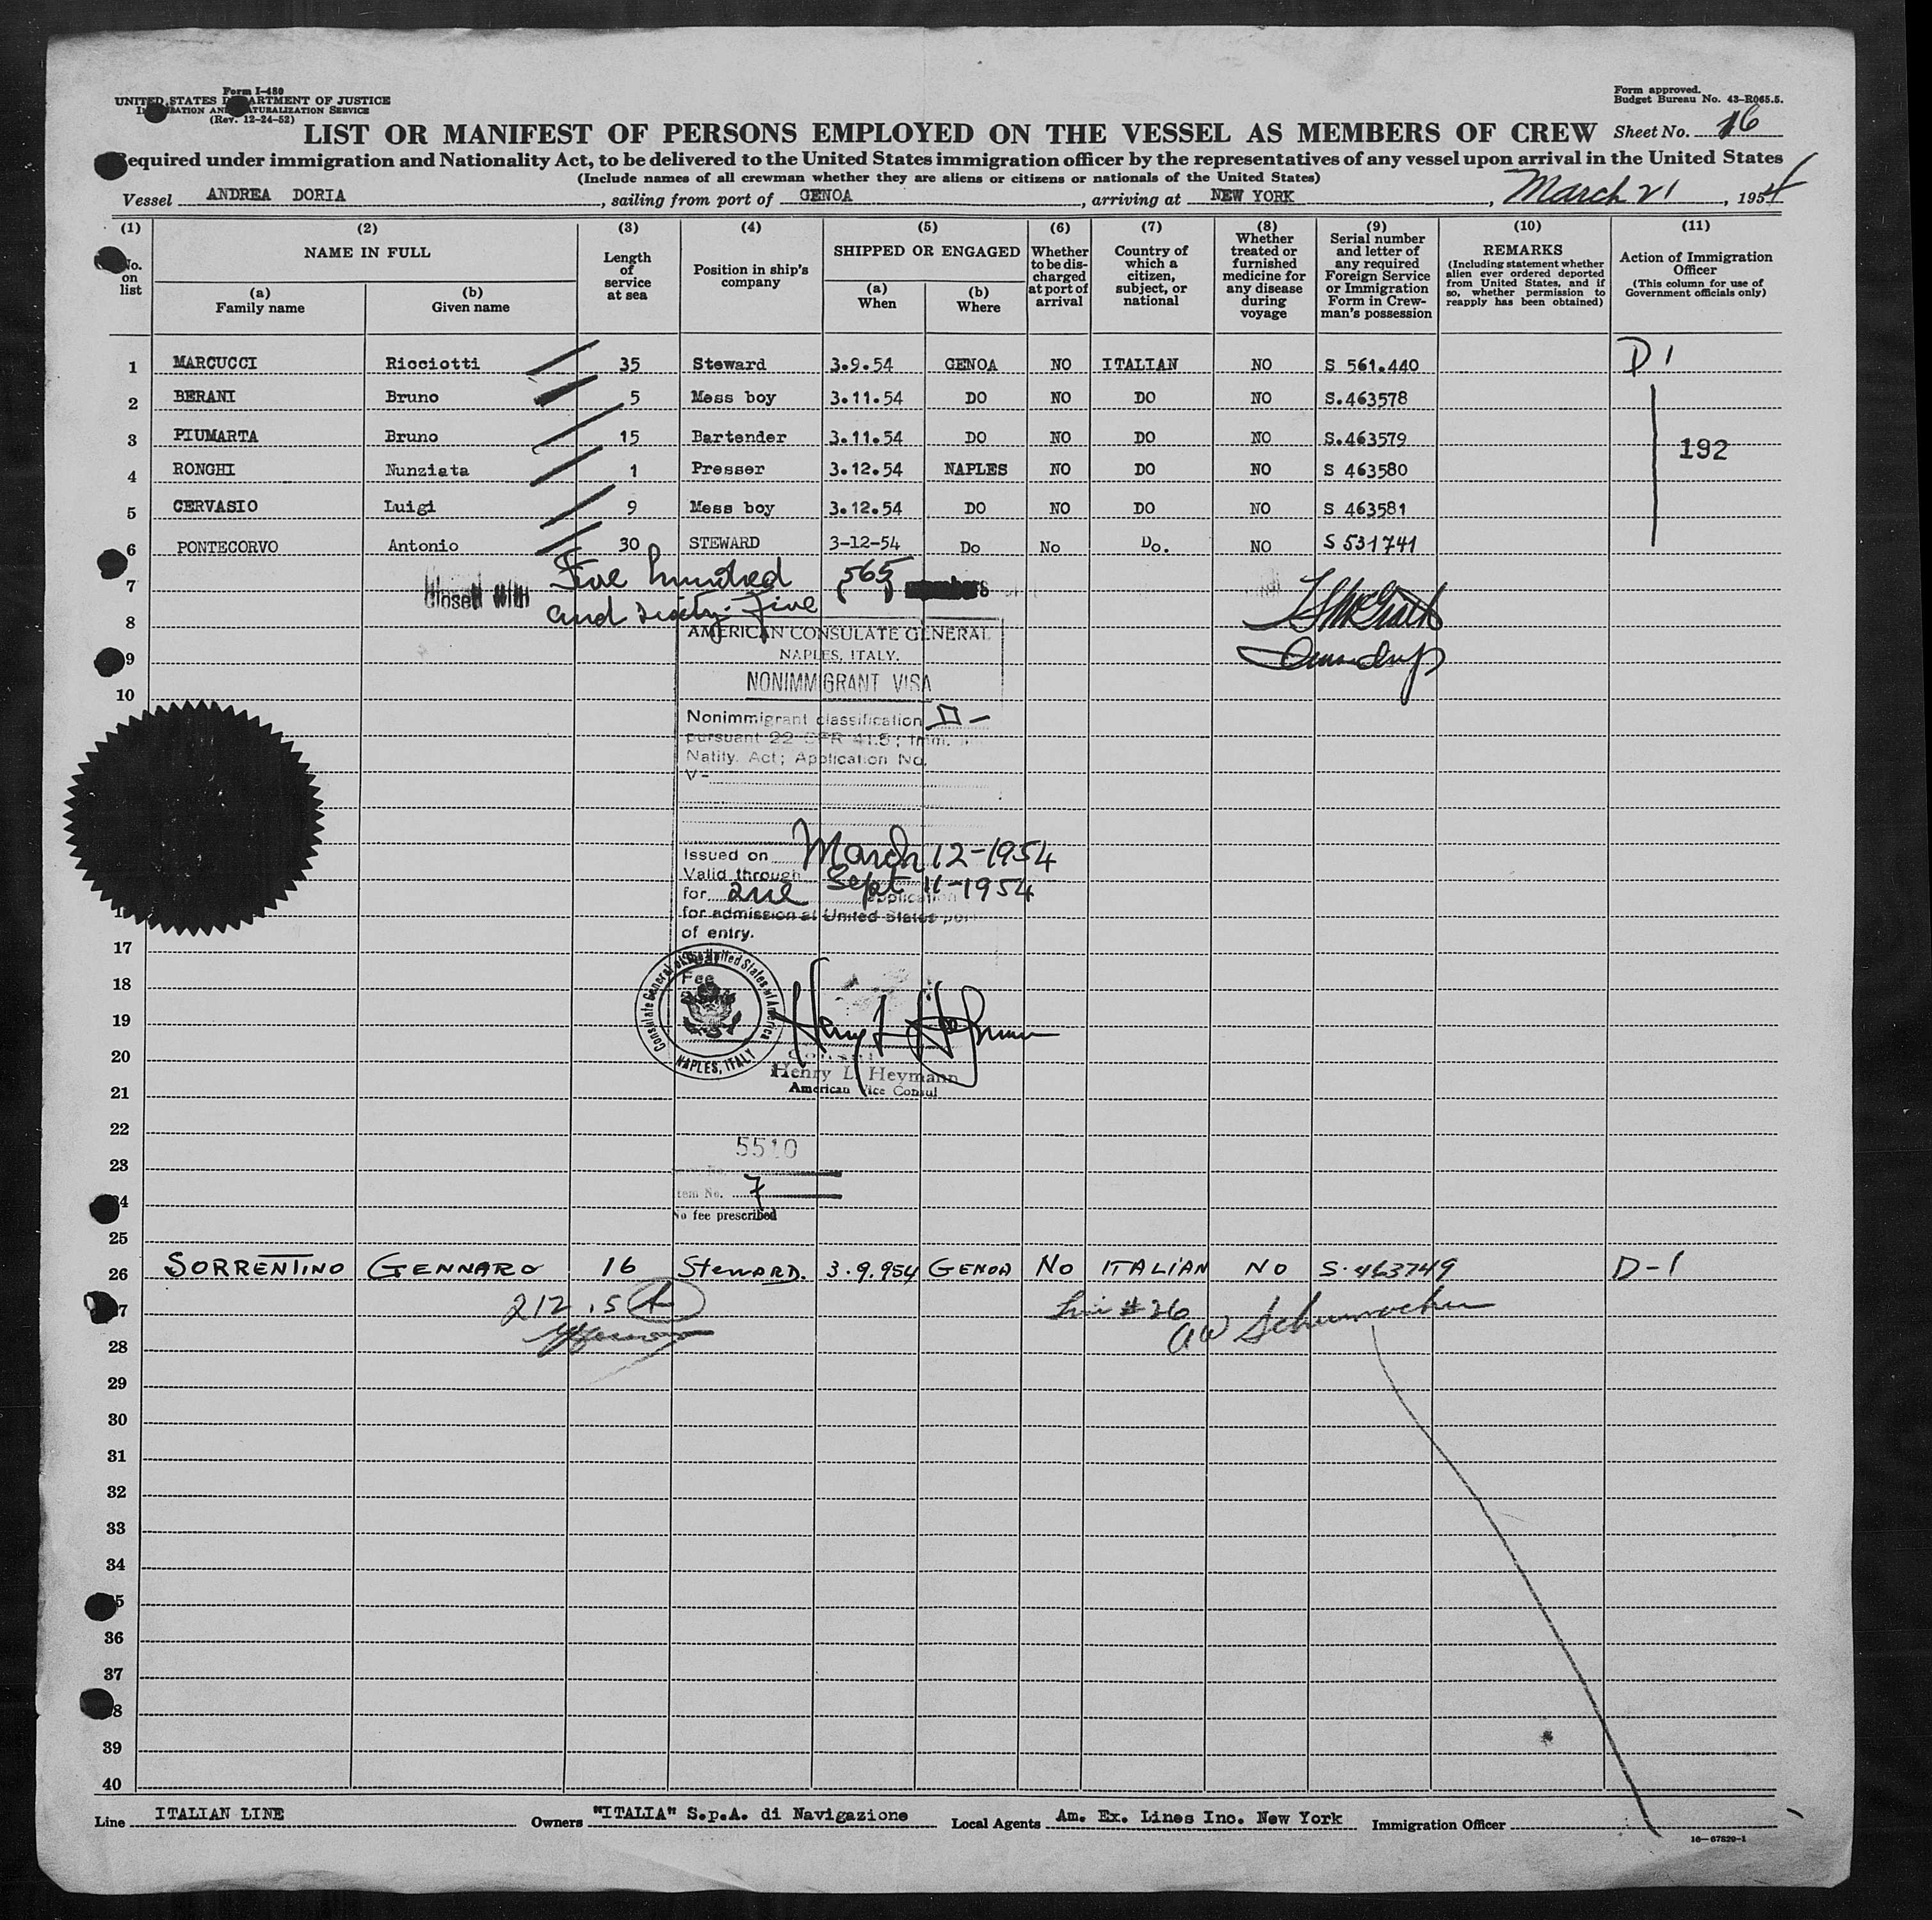 Form I-480
UNITED STATES DEPARTMENT OF JUSTICE
IMMIGRATION AND NATURALIZATION SERVICE
(Rev. 12-24-52)
Form approved.
Budget Bureau No. 43-R065.5.
LIST OR MANIFEST OF PERSONS EMPLOYED ON THE VESSEL AS MEMBERS OF CREW
Sheet No. 16
Required under immigration and Nationality Act, to be delivered to the United States immigration officer by the representatives of any vessel upon arrival in the United States
(Include names of all crewman whether they are aliens or citizens or nationals of the United States)
Vessel ANDREA DORIA, sailing from port of GENOA, arriving at NEW YORK, March 21, 1954
(1) (2) (3) (4) (5) (6) (7) (8) (9) (10) (11)
No. on list
NAME IN FULL
(a) Family name
(b) Given name
Length of service at sea
Position in ship's company
SHIPPED OR ENGAGED
(a) When
(b) Where
Whether to be discharged at port of arrival
Country of which a citizen, subject, or national
Whether treated or furnished medicine for any disease during voyage
Serial number and letter of any required Foreign Service or Immigration Form in Crewman's possession
REMARKS
(Including statement whether alien ever ordered deported from United States, and if so, whether permission to reapply has been obtained)
Action of Immigration Officer
(This column for use of Government officials only)
1 MARCUCCI Ricciotti 35 Steward 3.9.54 GENOA NO ITALIAN NO S 561.440 D 1
2 BERANI Bruno 5 Mess boy 3.11.54 DO NO DO NO S.463578
3 PIUMARTA Bruno 15 Bartender 3.11.54 DO NO DO NO S.463579
192
4 RONGHI Nunziata 1 Presser 3.12.54 NAPLES NO DO NO S 463580
5 CERVASIO Luigi 9 Mess boy 3.12.54 DO NO DO NO S 463581
6 PONTECORVO Antonio 30 STEWARD 3-12-54 Do No Do. NO S 531741
7 Closed with Five hundred (565) members
8 and sixty-five
AMERICAN CONSULATE GENERAL
9
NAPLES, ITALY.
NONIMMIGRANT VISA
10
Nonimmigrant classification D-
pursuant 22 CFR 41.5; Imm.
Natlty. Act; Application No.
V-
Issued on March 12-1954
Valid through Sept 11-1954
for one application
for admission at United States port
of entry.
17
Consulate General of the United States of America
NAPLES, ITALY
Fee
18
19
20
Consul
Henry L. Heymann
American Vice Consul
21
22
5510
23
Item No. 7
24
No fee prescribed
25
26 SORRENTINO GENNARO 16 STEWARD. 3.9.954 GENOA NO ITALIAN NO S.463749 D-1
27 212.5 Line #26
AW Schumacher
28
29
30
31
32
33
34
35
36
37
38
39
40
Line ITALIAN LINE Owners "ITALIA" S.p.A. di Navigazione Local Agents Am. Ex. Lines Inc. New York Immigration Officer
16-67829-1